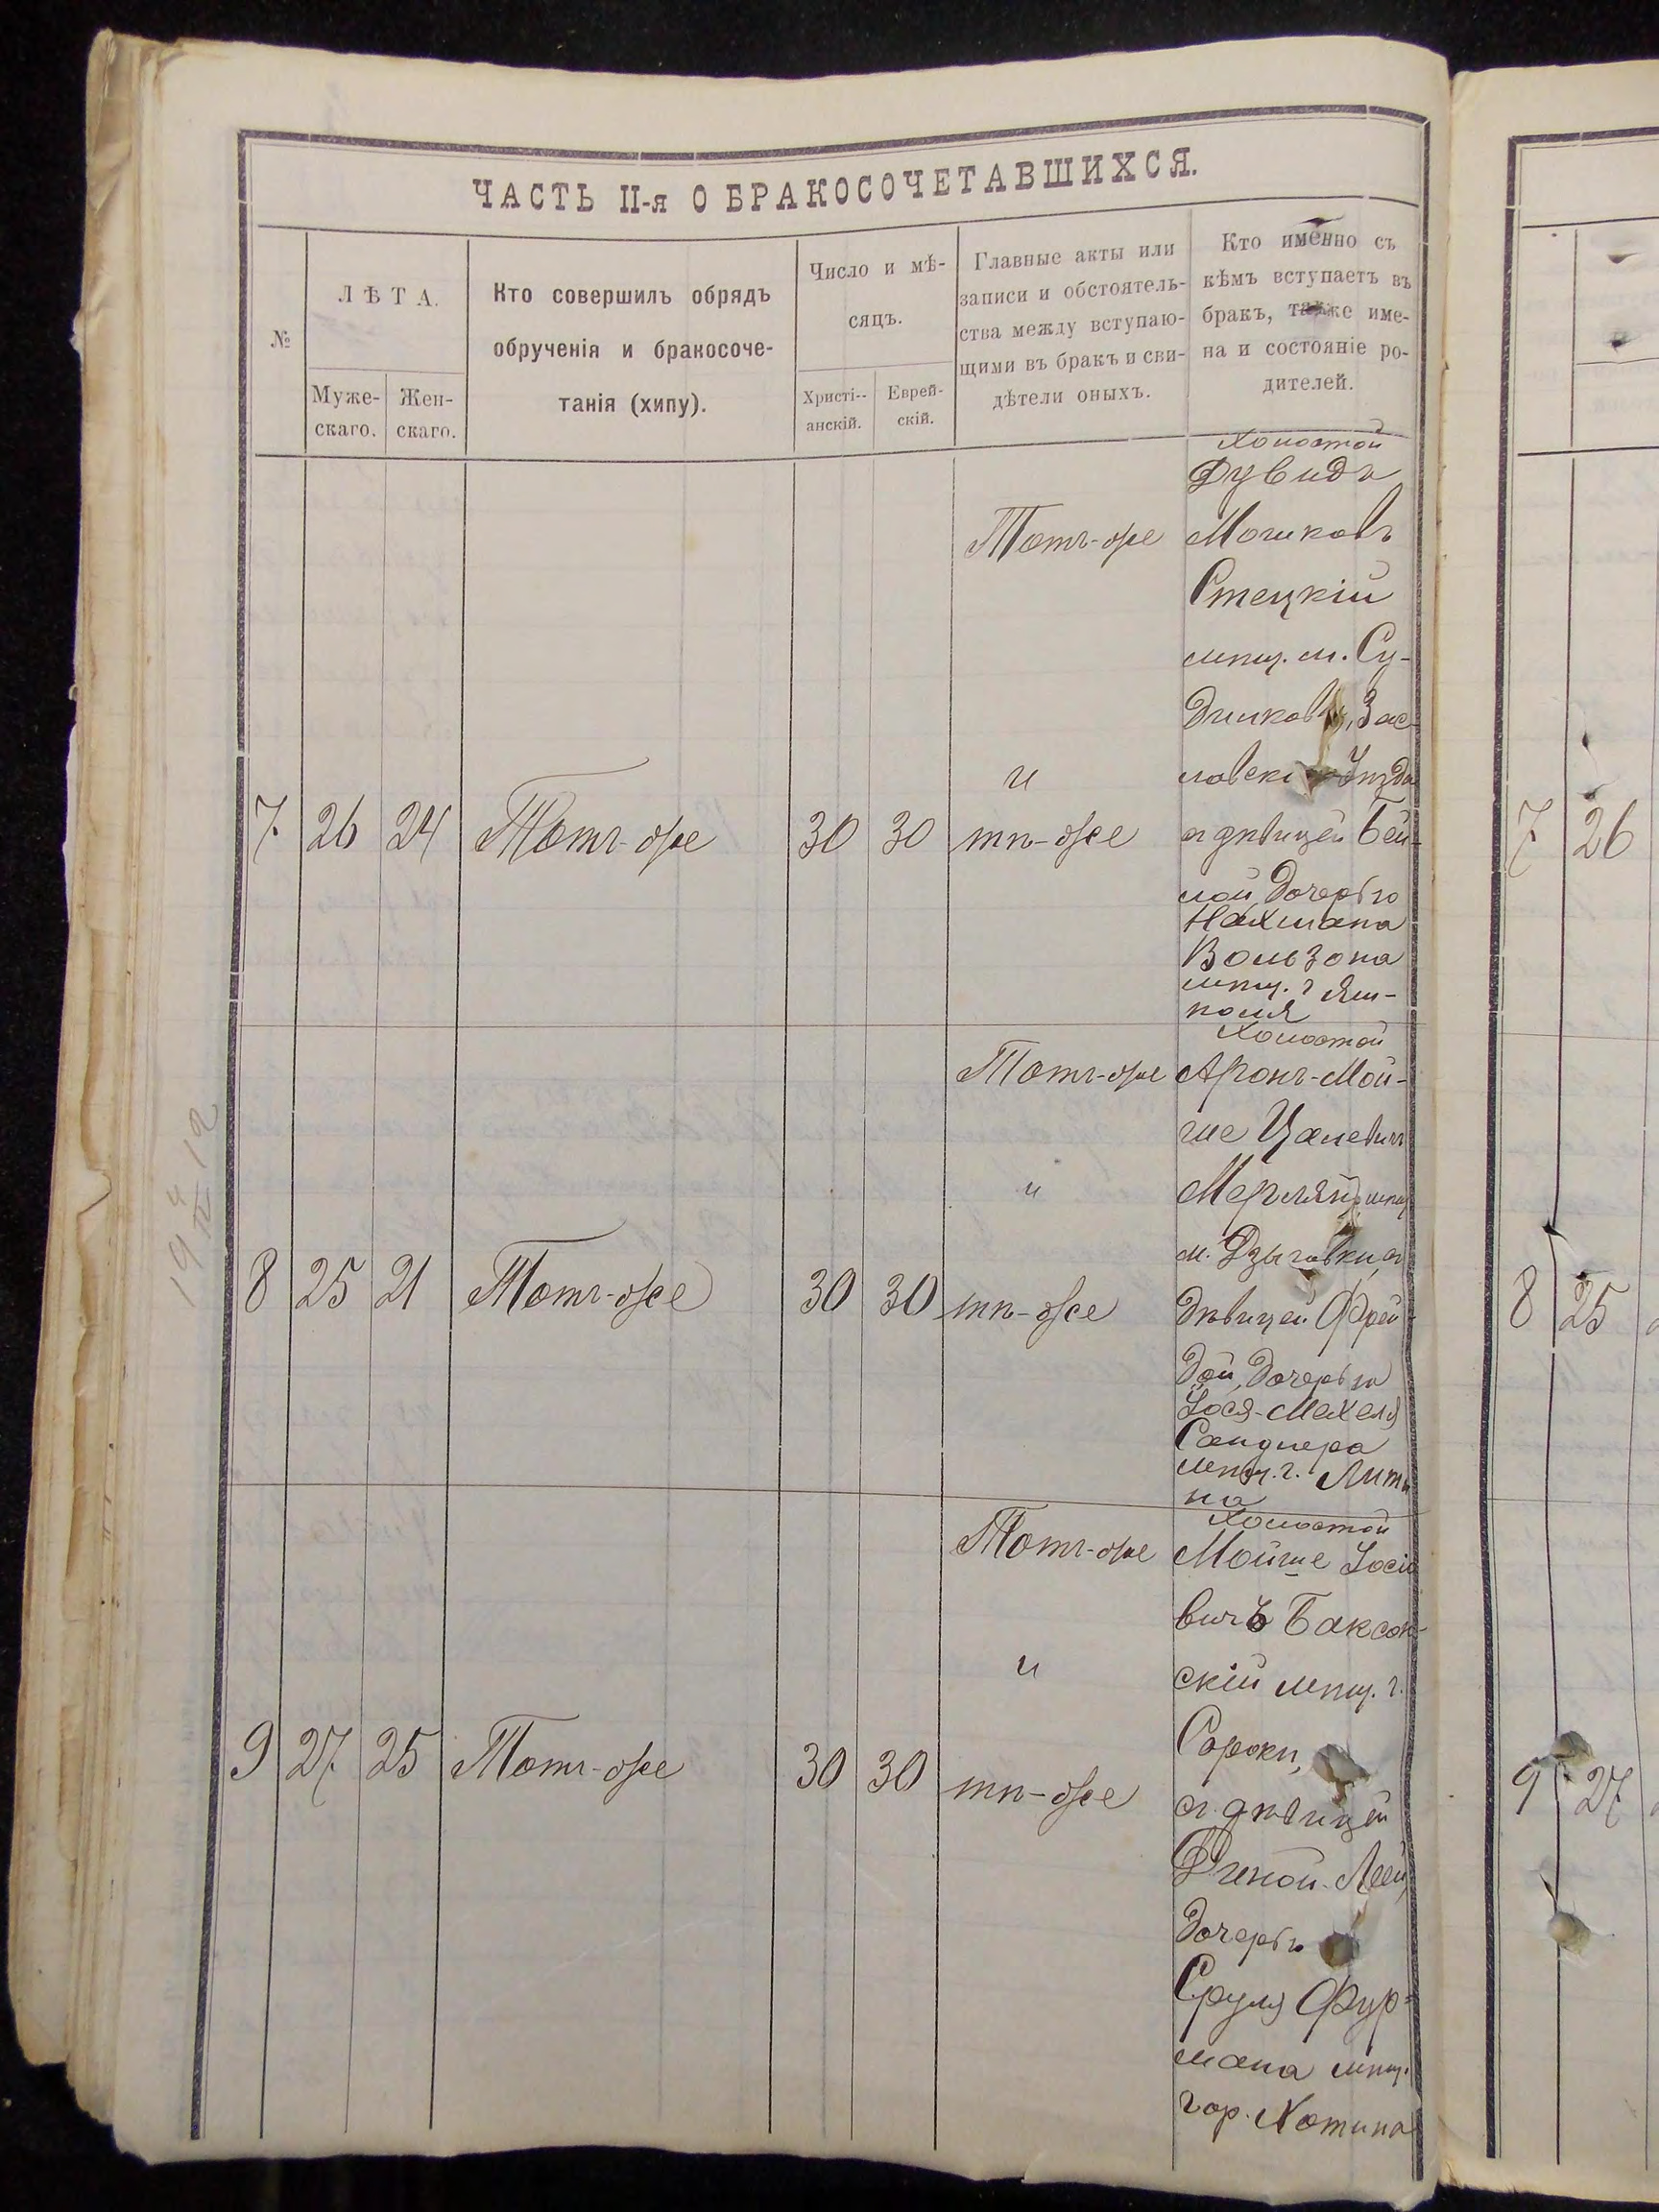 ЧАСТЬ II-я О БРАКОСОЧЕТАВШИХСЯ.
№
ЛѢТА.
Муже-
скаго.
Жен-
скаго.
Кто совершилъ обрядъ
обрученія и бракосоче-
танія (хипу).
Число и мѣ-
сяцъ.
Христі-
анскій.
Еврей-
скій.
Главные акты или
записи и обстоятель-
ства между вступаю-
щими въ бракъ и сви-
дѣтели оныхъ.
Кто именно съ
кѣмъ вступаетъ въ
бракъ, также име-
на и состояніе ро-
дителей.
7 26 24 Тотъ-же 30 30
Тотъ-же
и
тѣ-же
Холостой
Дувидъ
Мошковъ
Стецкій
мѣщ. м. Су-
дилков, Зас-
лавск Уѣзда
съ дѣвицей Бей-
лой, дочерью
Нахмана
Вользона
мѣщ. г Ям-
поля
8 25 21 Тотъ-же 30 30
Тотъ-же
и
тѣ-же
Холостой
Аронъ-Мой-
ше Цалевичъ
мѣщ
м. Дзыговки, съ
дѣвицей Фрей-
дой, дочерью
Іося-Мехеля
Сандлера
мѣщ. г. Лити
на
9 27 25 Тотъ-же 30 30
Тотъ-же
и
тѣ-же
Холостой
Мойше Іосіо
вичъ Баксон-
скій мѣщ. г.
Сороки,
съ дѣвицей
Леей,
дочерью
Сруля Фур-
мана мѣщ.
гор. Хотина
19 4/II 12
7 26
8 25
9 27